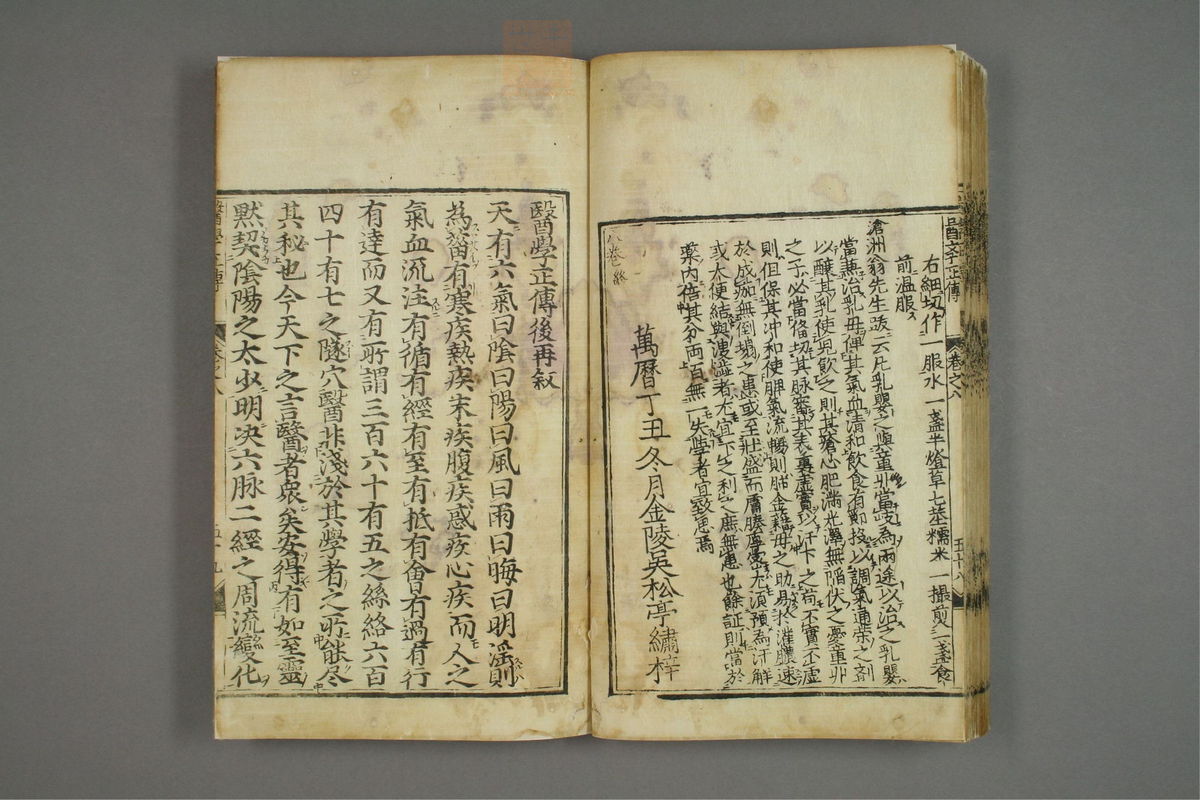 醫學正傳
卷之八
五十八
右細切作一服水一盞半燈草七莖糯米一撮煎三盞食
前温服
滄洲翁先生 云凡乳嬰之與童丱當岐為兩途以治之乳嬰
當兼治乳母俾其氣血清和飲食有節投以調氣通榮之劑
以釀其乳使兒飲之則其瘡心肥滿光澤無陷伏之憂童丱
之子必當脩切其脉審其表裏虛實以汗下之苟不實不虛
則但保其沖和使脾氣流暢則肺金藉母之助易於灌膿速
於成痂無倒塌之患或至壯盛而膚腠厚密尤須預為汗解
或大便結與溲澁者尤宜下之利之庶無患也餘証則當於
藥內倍其分兩百無一失學者宜致思焉
萬曆丁丑冬月金陵吳松亭繡梓
八卷終
醫學正傳後再敘
天有六氣曰陰曰陽曰風曰雨曰晦曰明滛則
為菑有寒疾熱疾末疾腹疾惑疾心疾而人之
氣血流注有循有經有至有抵有會有過有行
有達而又有所謂三百六十有五之絲絡六百
四十有七之隧穴醫非淺於其學者之所能尽
其秘也今天下之言醫者衆矣安得有如至靈
默契陰陽之太少明决六脉二經之周流變化